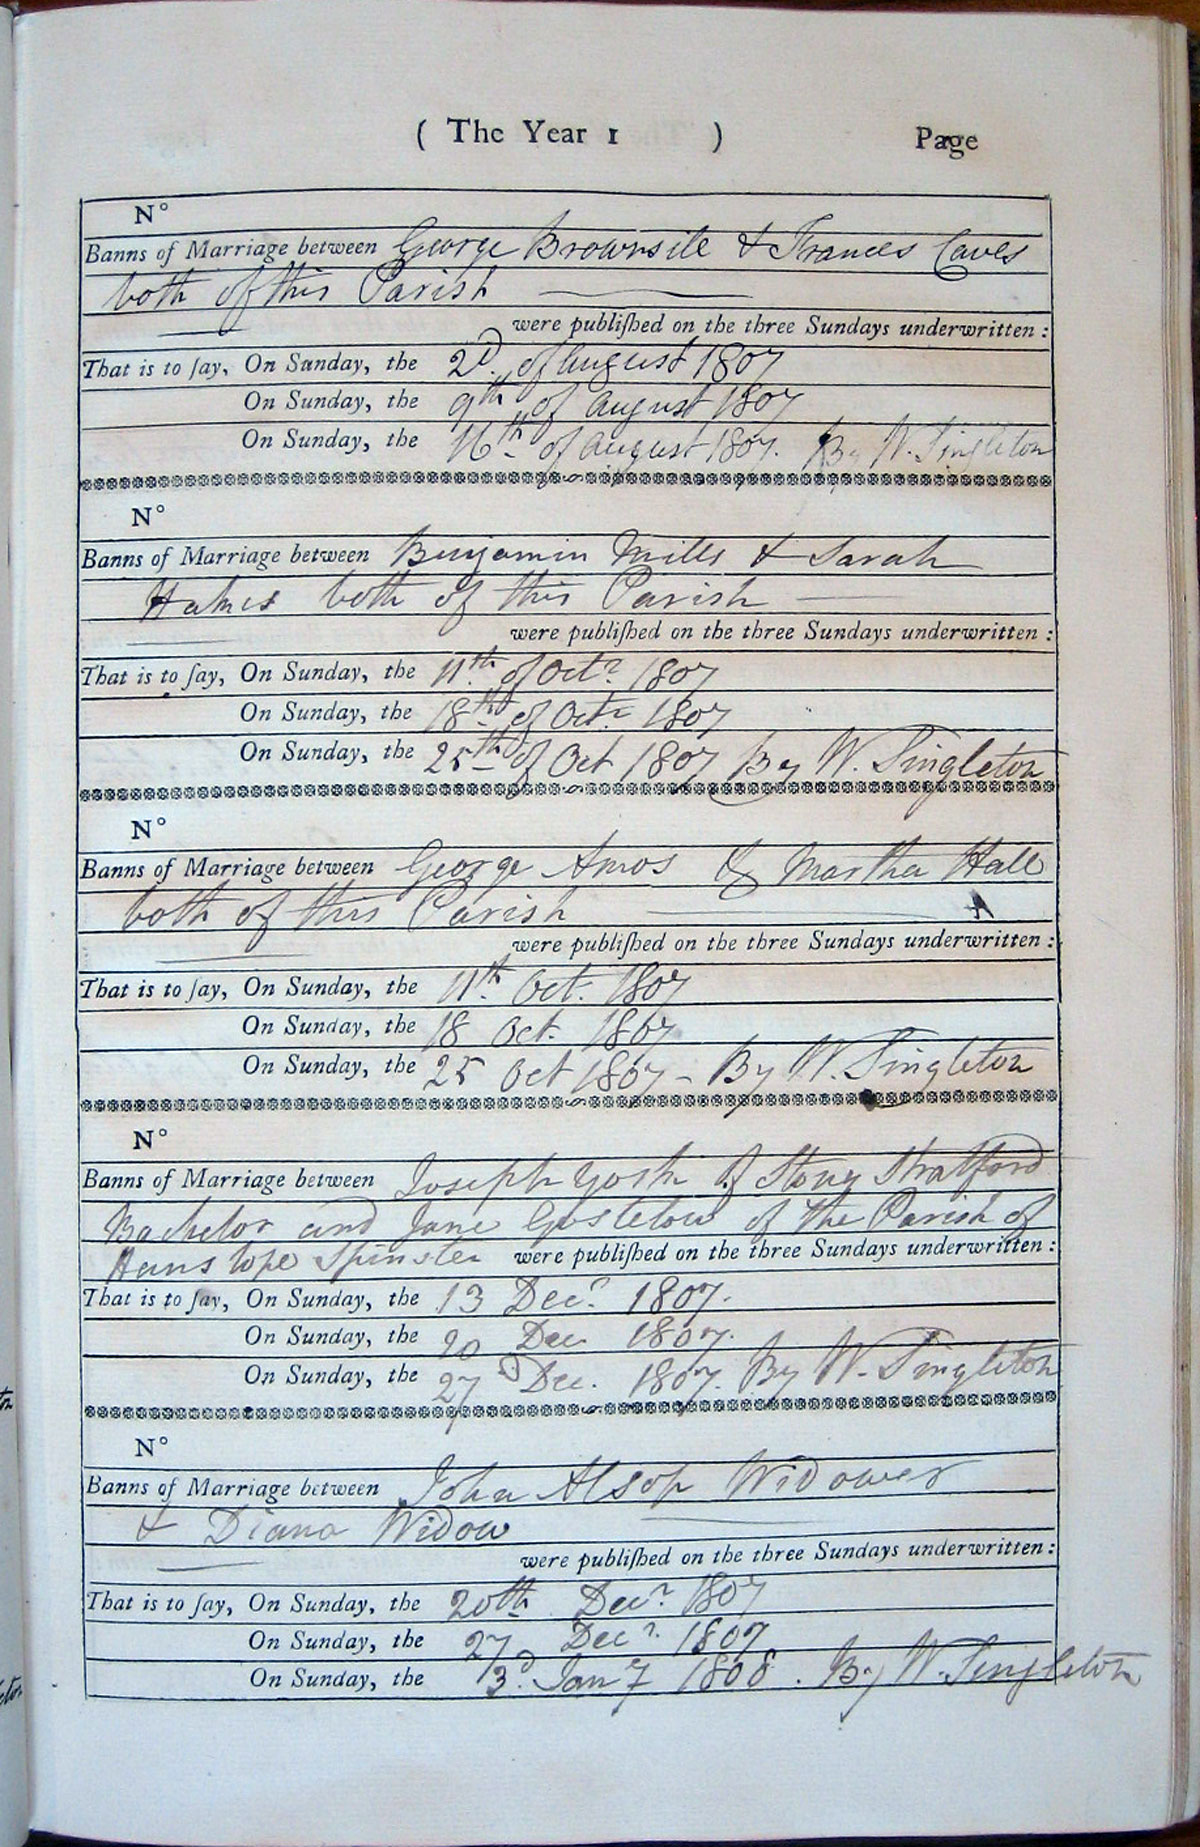 ( The Year 1 ) Page
N°
Banns of Marriage between George Brownsile & Frances Caves
both of this Parish
were publiſhed on the three Sundays underwritten :
That is to ſay, On Sunday, the 2D. of August 1807
On Sunday, the 9th of August 1807
On Sunday, the 16th of August 1807. By W. Singleton
N°
Banns of Marriage between Benjamin Mills & Sarah
both of this Parish
were publiſhed on the three Sundays underwritten :
That is to ſay, On Sunday, the 11th of Octr 1807
On Sunday, the 18th of Octr 1807
On Sunday, the 25th of Oct 1807 By W. Singleton
N°
Banns of Marriage between George Amos & Martha Hall
both of this Parish
were publiſhed on the three Sundays underwritten :
That is to ſay, On Sunday, the 11th. Oct. 1807
On Sunday, the 18 Oct. 1807
On Sunday, the 25 Oct 1807 - By W. Singleton
N°
Banns of Marriage between Joseph of Stony Stratford
Bachelor and Jane Gostelow of the Parish of
Hanslope Spinster were publiſhed on the three Sundays underwritten :
That is to ſay, On Sunday, the 13 Decr. 1807.
On Sunday, the 20 Dec 1807.
On Sunday, the 27 Dec. 1807. By W. Singleton
N°
Banns of Marriage between John Alsop Widower
& Diana Widow
were publiſhed on the three Sundays underwritten :
That is to ſay, On Sunday, the 20th Decr. 1807
On Sunday, the 27 Decr. 1807
On Sunday, the 3D. Jany 1808. By W. Singleton